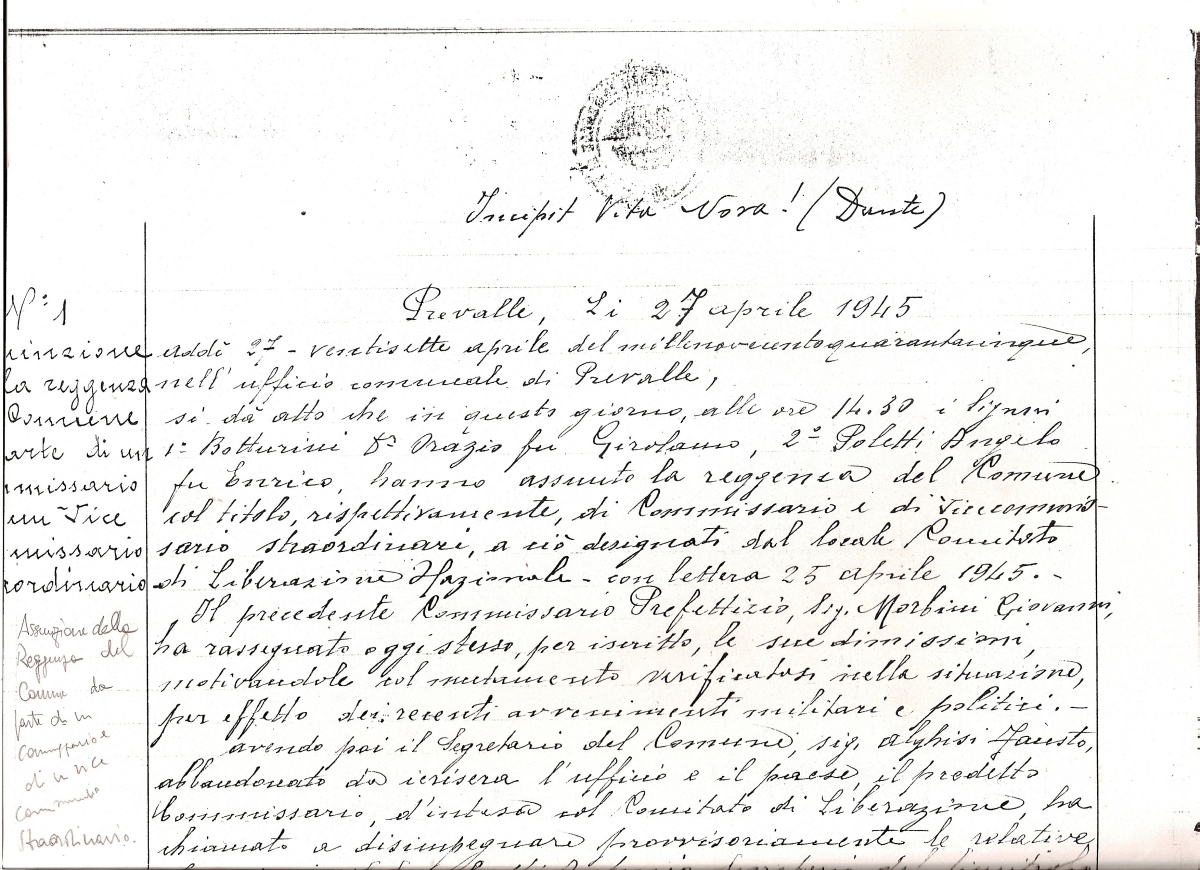 Incipit Vita Nova! (Dante)
N° 1
Prevalle, Li 27 aprile 1945
unzione
la reggenza
Comune
arte di un
missario
un Vice
missario
ordinario
addì 27 - ventisette aprile del millenovecentoquarantacinque,
nell'ufficio comunale di Prevalle,
si dà atto che in questo giorno, alle ore 14.30 i Signori
1° Botturini Dr Orazio fu Girolamo, 2° Poletti Angelo
fu Enrico, hanno assunto la reggenza del Comune
col titolo, rispettivamente, di Commissario e di Vicecommis-
sario straordinari, a ciò designati dal locale Comitato
di Liberazione Nazionale - con lettera 25 aprile 1945. -
Il precedente Commissario Prefettizio, Sig. Morbini Giovanni,
ha rassegnato oggi stesso, per iscritto, le sue dimissioni,
motivandole col mutamento verificatosi nella situazione,
per effetto dei recenti avvenimenti militari e politici. -
avendo poi il Segretario del Comune, sig. Alghisi Fausto,
abbandonato da ierisera l'ufficio e il paese, il predetto
Commissario, d'intesa col Comitato di Liberazione, ha
chiamato a disimpegnare provvisoriamente le relative
Assunzione della
Reggenza del
Comune da
parte di un
Commissario e
di un vice
Commissario
Straordinario.